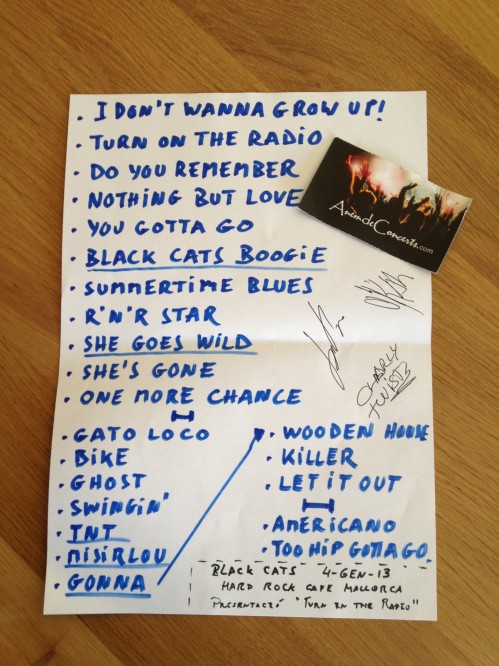 · I DON'T WANNA GROW UP!
· TURN ON THE RADIO
· DO YOU REMEMBER
· NOTHING BUT LOVE
· YOU GOTTA GO
· BLACK CATS BOOGIE
· SUMMERTIME BLUES
· R'N'R STAR
· SHE GOES WILD
· SHE'S GONE
· ONE MORE CHANCE
AnemdeConcerts.com
CHARLY
· GATO LOCO
· BIKE
· GHOST
· SWINGIN'
· TNT
· MISIRLOU
· GONNA
· WOODEN HOUSE
· KILLER
· LET IT OUT
· AMERICANO
· TOO HIP GOTTA GO
BLACK CATS 4-GEN-13
HARD ROCK CAFE MALLORCA
PRESENTACIÓ "TURN ON THE RADIO"